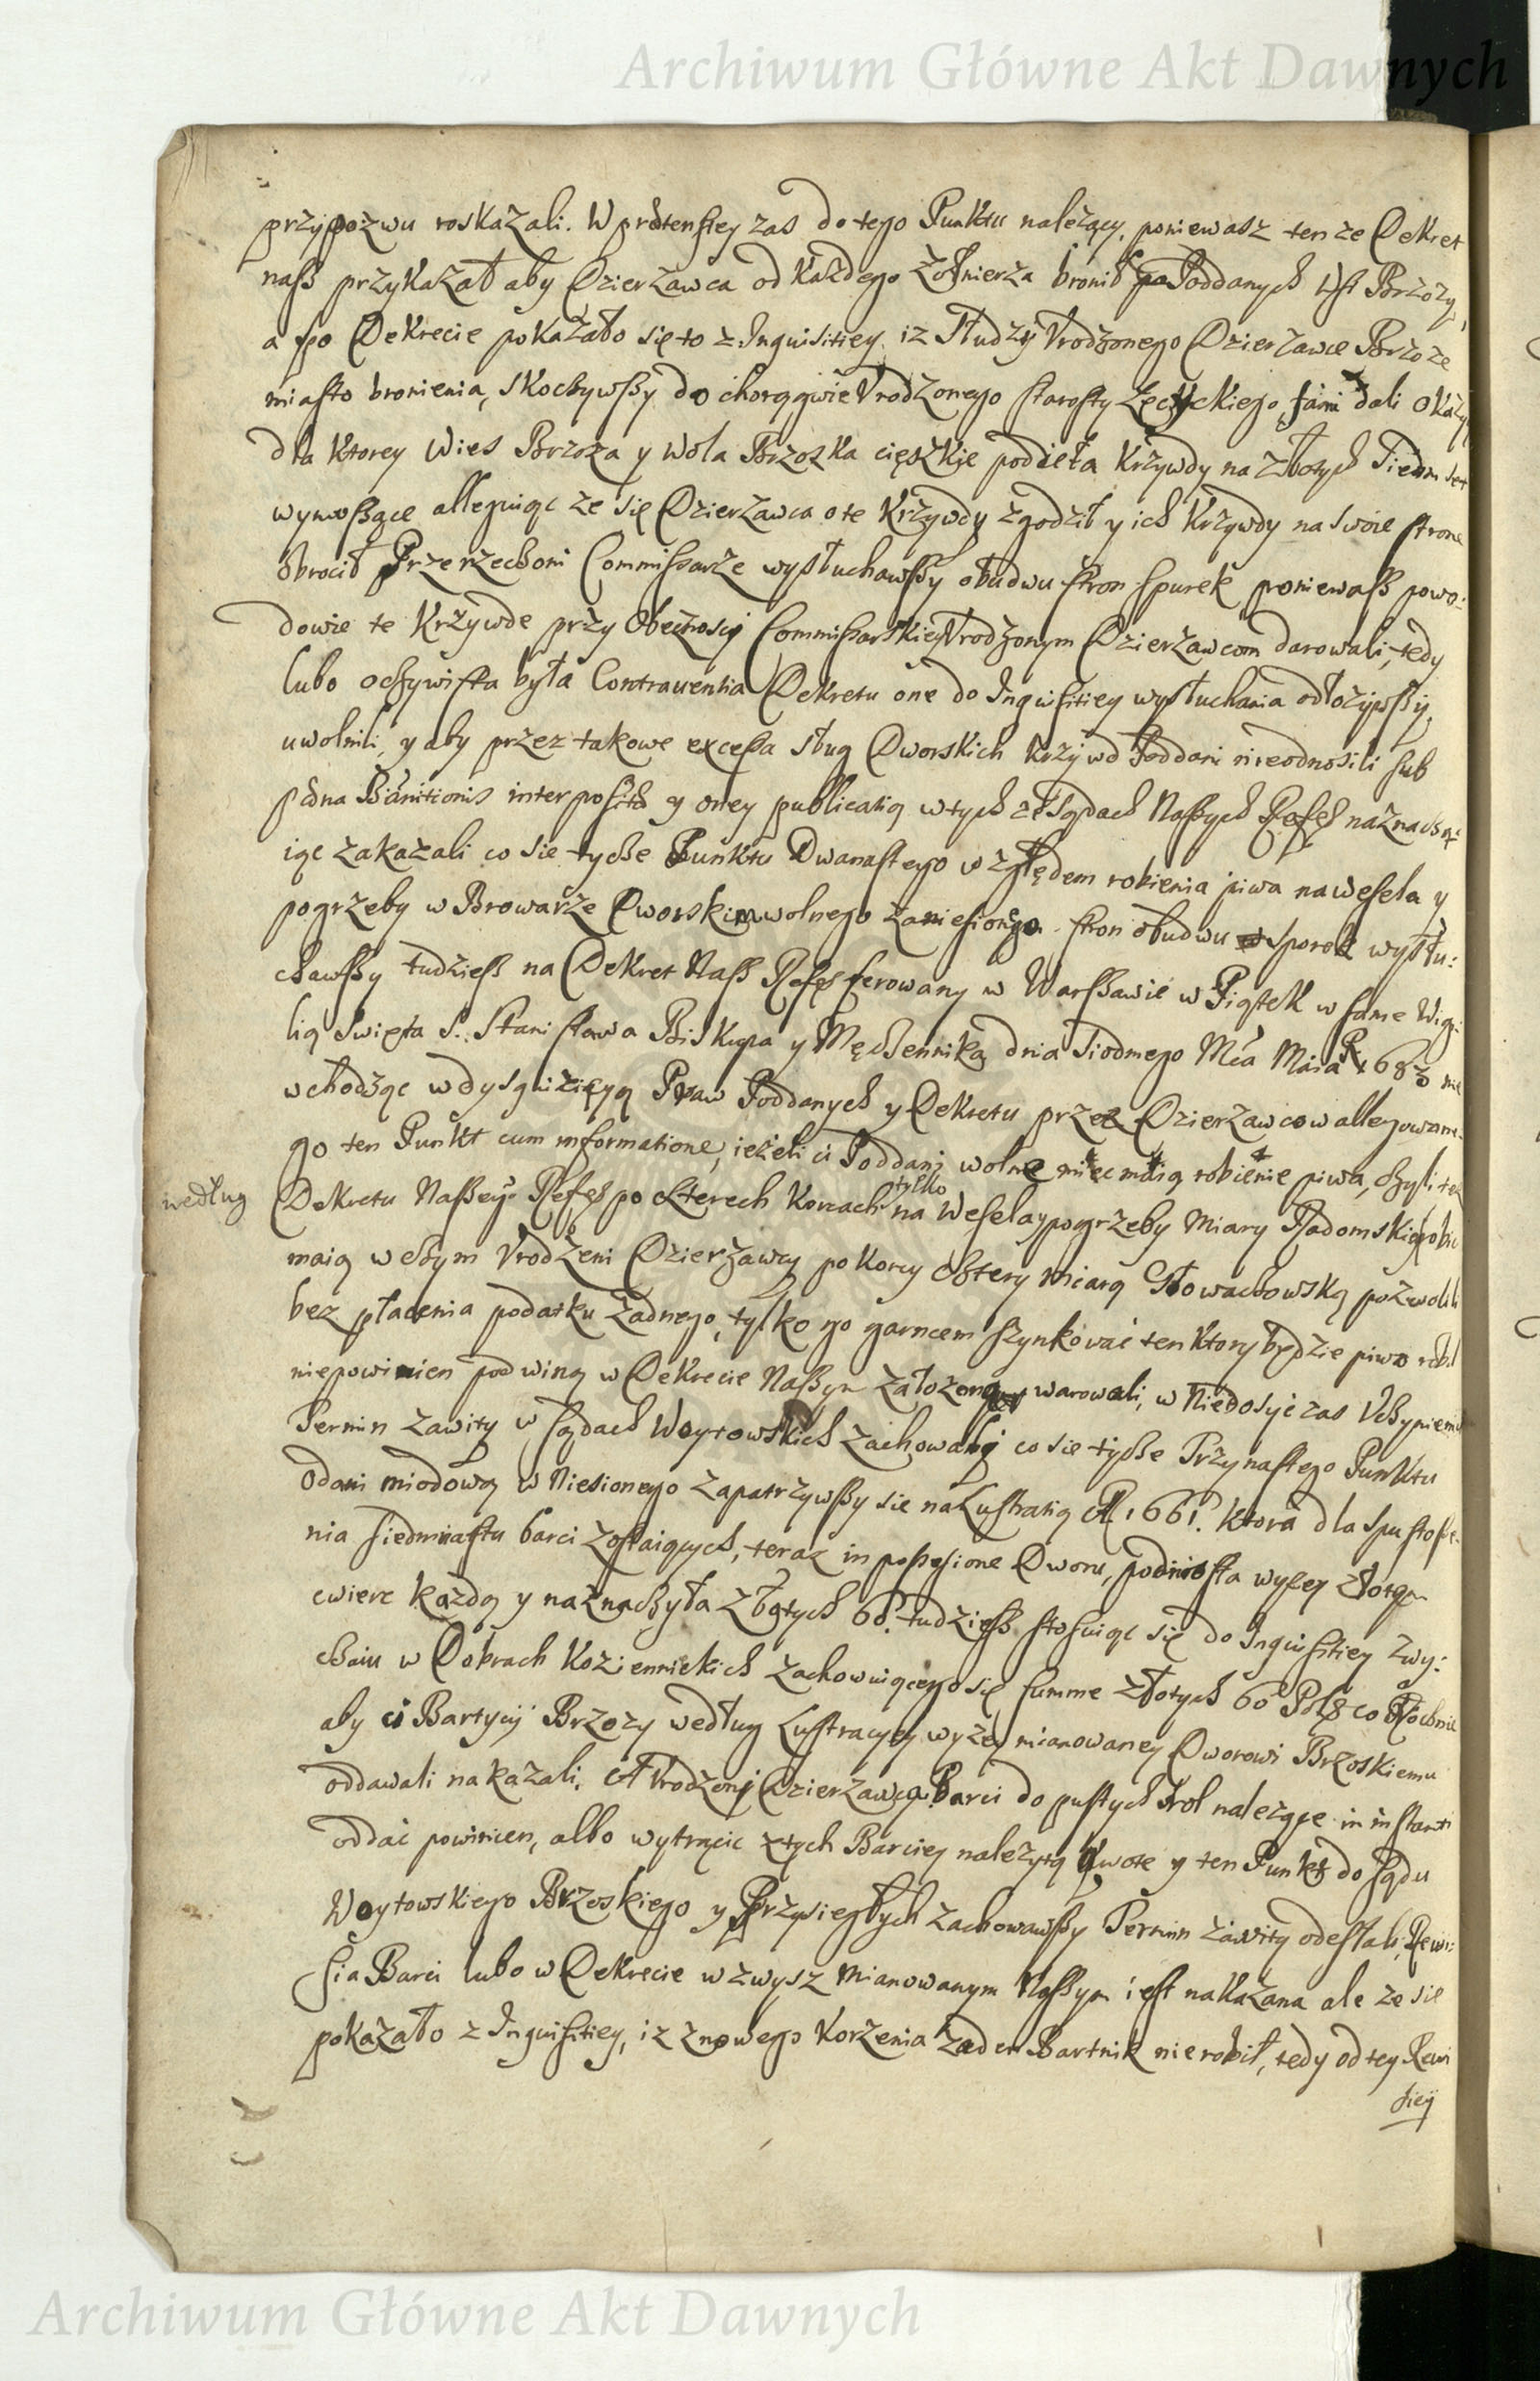 Archiwum Główne Akt Dawnych
przypozwu roskazali. W prætensiey zas do tego Punktu należący, poniewasz ten ze Dekret
nasz przykazał aby Dzierzawca od każdego Zołnierza bronił Poddanych Brzozy,
a po Dekrecie pokazało się to z Inquisitiey iz Słudzy Vrodzonego Dzierzawce Brzoze
miasto bronienia, skoczywszy do chorągwie Vrodzonego Starosty Łęczyckiego, sami dali okazy
dla ktorey Wies Brzoza y Wola Brzozka cięszkie podieła krzywdy na złotych Siedm set
wynoszące alleguiąc ze się Dzierzawca o te Krzywdy zgodził y ich Krzywdy na swoie strone
obrocił Przerzeczoni Commissarze wysłuchawszy obudwu stron spurek poniewasz powo:
dowie te Krzywde przy Obecnosci Commissarskiey Vrodzonym Dzierzawcom darowali, tedy
lubo oczywista była Contrauentia Dekretu one do Inquisitiey wysłuchania odłozywszy,
uwolnili, y aby przez takowe excessa sług Dworskich krzywd Poddani nieodnosili sub
pæna Bannitionis interposita y oney publicatią w tych ze Sądach Naszych naznacza
iąc zakazali co sie tycze Punktu Dwanastego względem robienia piwa na wesela y
pogrzeby w Browarze Dworskim wolnego zaniesionego. stron obudwu sporek wysłu:
chawszy tudziesz na Dekret Nasz ferowany w Warszawie w Piątek w same Wigi
lią Swięta S. Stanisława Biskupa y Męczennika dnia Siodmego Mca Maia R 1683 nie
wchodząc w dysquizicyą Praw Poddanych y Dekretu przez Dzierzawcow allegowane:
go ten Punkt cum informatione, iezeli ci Poddani wolne miec maią robienie piwa, czyli tez
według
tylko
Dekretu Naszego po czterech Korcach na Wesela y pogrzeby Miary Radomskiey robic
maią w czym Vrodzeni Dzierzawcy po korcy cztery miarą Głowaczowską pozwolili
bez płacenia podatku zadnego, tylko go garncem szynkowac ten ktory będzie piwo robił
niepowinien pod winą w Dekrecie Naszym załozoną warowali, w Niedosyc zas Vczynieniu
Termin zawity w Sądach Woytowskich zachowali co sie tycze Trzynastego Punktu
o dani miodową wniesionego zapatrzywszy sie na Lustratią A 1661. ktora dla spustosze:
nia siedmnastu barci zostaiących, teraz in possesione Dworu, podniosła wyzey złotym
cwierc kazdą y naznaczyła Złotych 60. tudziesz stosuiąc się do Inquisitiey zwy:
czaiu w Dobrach Kozienickich zachowuiącego się summe złotych 60 co Rocznie
aby ci Bartnicy Brzozy według Lustracyey wyzey mianowaney Dworowi Brzoskiemu
oddawali nakazali. A Vrodzony Dzierzawca Barci do pustych rol nalezące in instanti
oddac powinien, albo wytrącic z tych Barciey nalezytą kwote y ten Punkt do Sądu
Woytowskiego Brzoskiego y Przysiegłych zachowawszy Termin zawity odesłali, Rewi:
sia Barci lubo w Dekrecie wzwysz mianowanym Naszym iest nakazana ale ze sie
pokazało z Inquisitiey, iz znowego Korzenia zaden Bartnik nie robił, tedy od tey Rewi
siey
Archiwum Główne Akt Dawnych